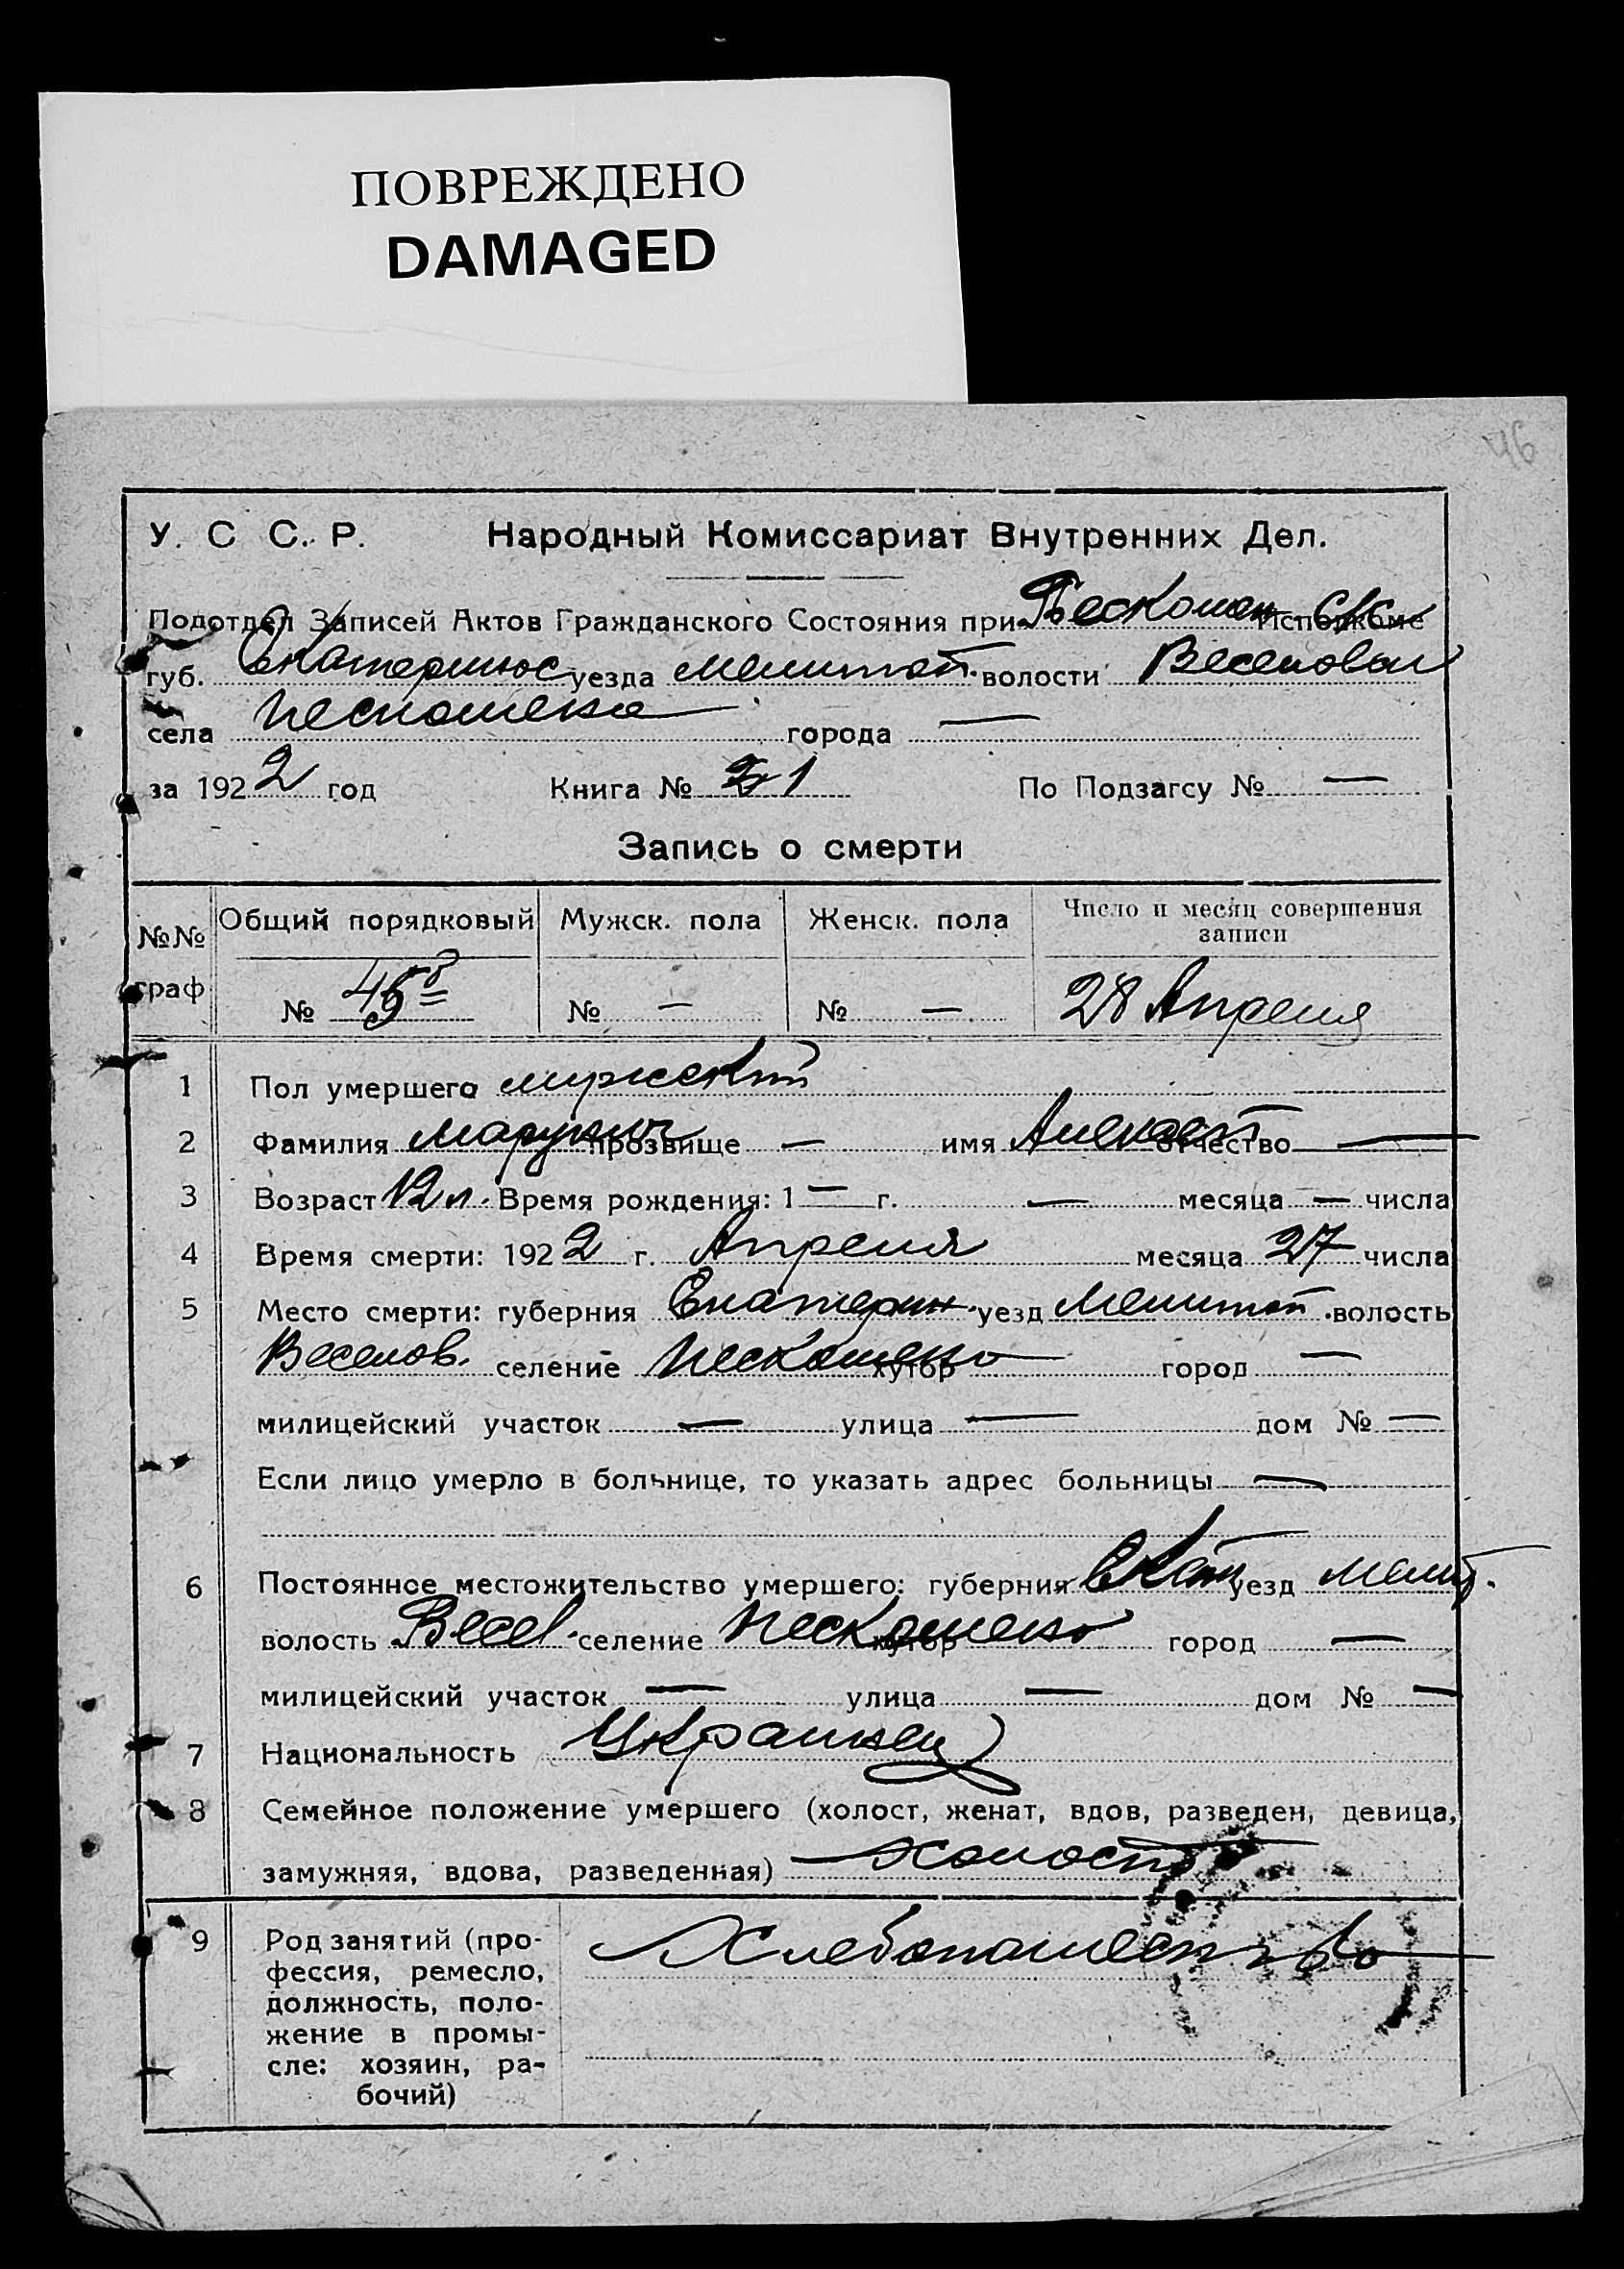 ПОВРЕЖДЕНО
DAMAGED
46
У. С С. Р. Народный Комиссариат Внутренних Дел.
Подотдел Записей Актов Гражданского Состояния при Исполкоме
губ. уезда Мелитоп. волости
села города —
за 1922 год Книга № 1 По Подзагсу № —
Запись о смерти
№№ граф Общий порядковый Мужск. пола Женск. пола Число и месяц совершения записи
№ № — № — 28 Апреля
1 Пол умершего мужской
2 Фамилия прозвище — имя Алексей отчество —
3 Возраст 12 л. Время рождения: 1 — г. — месяца — числа
4 Время смерти: 1922 г. Апреля месяца 27 числа
5 Место смерти: губерния Екатерин. уезд Мелитоп. волость
Веселов. селение хутор город —
милицейский участок — улица — дом № —
Если лицо умерло в больнице, то указать адрес больницы —
6 Постоянное местожительство умершего: губерния Екат уезд Мелит.
волость Весел. селение хутор город —
милицейский участок — улица — дом № —
7 Национальность Украинец
8 Семейное положение умершего (холост, женат, вдов, разведен, девица,
замужняя, вдова, разведенная) холост
9 Род занятий (про- Хлебопашество
фессия, ремесло,
должность, поло-
жение в промы-
сле: хозяин, ра-
бочий)